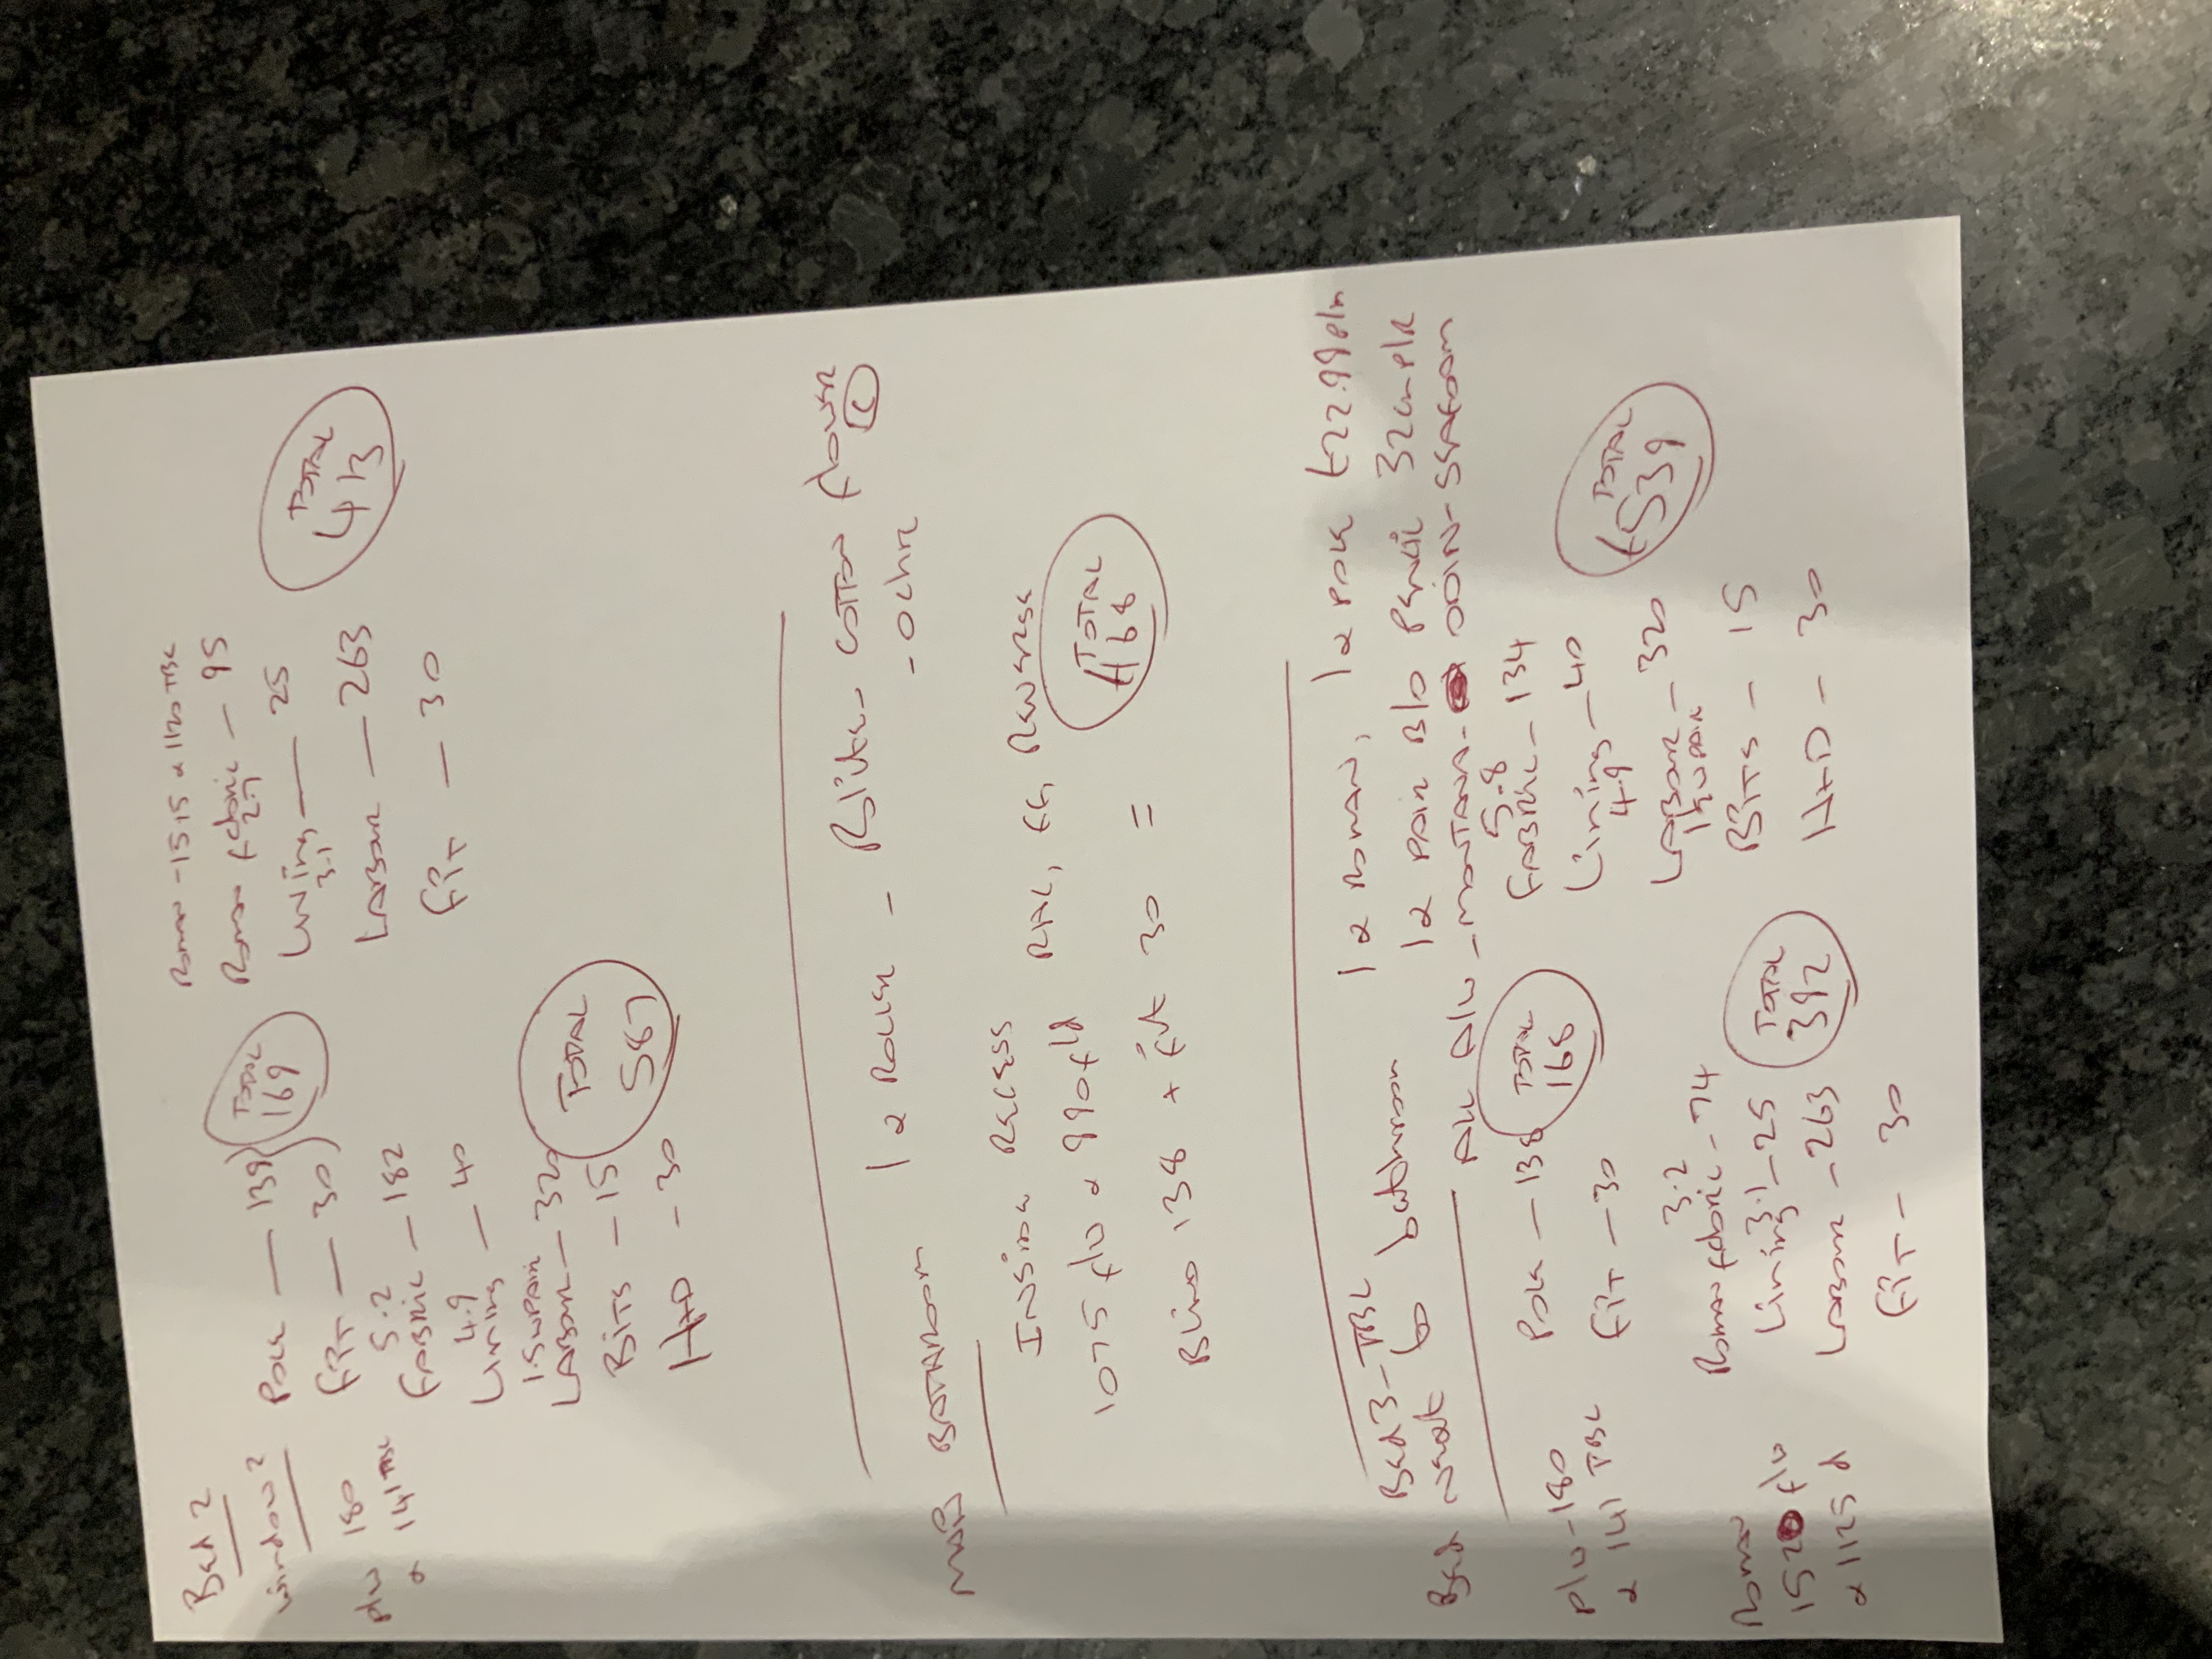 Bed 2
Window 2
plw 180
x 141 TBC
Pole — 139
Fit — 30
TOTAL
169
5.2
Fabric — 182
4.9
Lining — 40
1.5w pair
Labour — 320
Bits — 15
H+D - 30
TOTAL
587
Roman - 1515 x 1120 TBC
Roman fabric — 95
2.7
Lining — 25
3.1
Labour — 263
Fit — 30
TOTAL
413
BATHROOM 1 x Roller -
- ochre
Inside Recess
1075 flw x 990 fld
Blind 138 + fit 30 =
TOTAL
£168
Bed 3 - TBC
Bed next to bathroom
1 x Roman, 1 x Pole £22.99 plm
1 x pair B/O Pencil 32cm P/R
TOTAL
168
plw - 180
x 141 TBC
Pole — 138
Fit — 30
5.8
Fabric — 134
Lining — 40
4.9
Labour — 320
1½w pair
Bits — 15
H+D - 30
TOTAL
£539
Roman
1520 flw
x 1125 d
3.2
Roman fabric - 74
3.1
Lining - 25
Labour - 263
Fit - 30
TOTAL
392